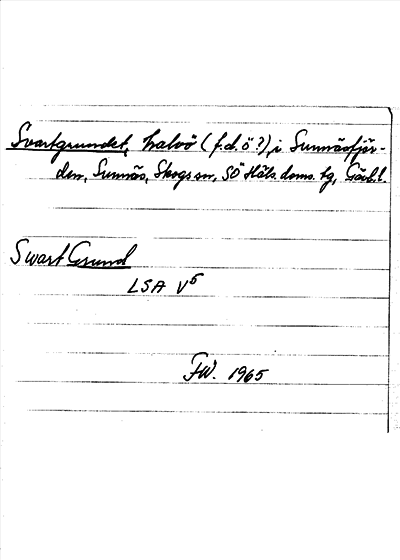 Svartgrundet, halvö (f.d. ö?), i Sunnäsfjär-
den, Sunnäs, Skogs sn, SÖ Häls. doms. tg, Gävl. l.
Swart Grund
LSA V5
FW. 1965